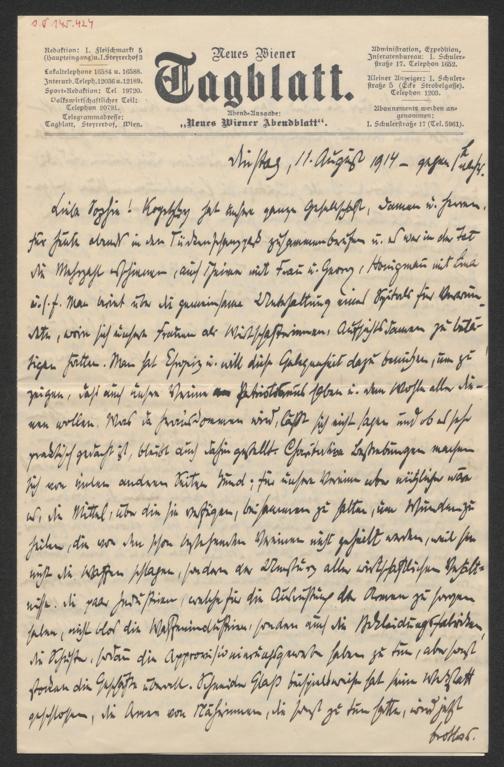 I.N. 145.424
Redaktion: I. Fleischmarkt 5
(Haupteingang) u. I. Steyrerhof 3
Lokaltelephone 16584 u. 16588.
Interurb. Teleph. 12036 u. 12189.
Sport-Redaktion: Tel. 19720.
Volkswirtschaftlicher Teil:
Telephon 20791.
Telegrammadresse:
Tagblatt, Steyrerhof, Wien.
Neues Wiener
Tagblatt.
Abend-Ausgabe:
„Neues Wiener Abendblatt“.
Administration, Expedition,
Inseratenbureau: I. Schuler-
straße 17. Telephon 1652.
Kleiner Anzeiger: I. Schuler-
straße 5 (Ecke Strobelgasse).
Telephon 1203.
Abonnements werden an-
genommen:
I. Schulerstraße 17 (Tel. 5961).
Dienstag, 11. August 1914 – gegen
Liebe Sophie! Kopetzky hat unsere ganze Gesellschaft, Damen u. Herren,
für heute abends in den Türkenschanzpark zusammenberufen u. es war in der Tat
die Mehrzahl erschienen, auch mit Frau u. Georg, Honigmann mit
u.s.f. Man beriet über die gemeinsame Unterhaltung eines Spitals für Verwun-
dete, worin sich unsere Frauen als Wirtschafterinnen, Aufsichtsdamen zu betä-
tigen hätten. Man hat Ehrgeiz u. will diese Gelegenheit dazu benutzen, um zu
zeigen, daß auch unsere Vereine Patriotismus haben u. dem Wohle aller die-
nen wollen. Was da herauskommen wird, läßt sich nicht sagen und ob es sehr
praktisch gedacht ist, bleibt auch dahingestellt. Charitative Bestrebungen machen
sich von vielen anderen Seiten kund; für unsere Vereine aber nützlicher wäre
es, die Mittel, über die sie verfügen, beisammen zu halten, um Wunden zu
heilen, die von den schon bestehenden Vereinen nicht geheilt werden, weil sie
nicht die Waffen schlagen, sondern der Umsturz aller wirtschaftlichen Verhält-
nisse: die paar Industrien, welche für die Ausrüstung der Armee zu sorgen
haben, nicht blos die Waffenindustrien, sondern auch die Bekleidungsfabriken,
die Schuster, sodann die Approvisionierungsgewerbe haben zu tun, aber sonst
stocken die Geschäfte überall. Schneider Glaß beispielsweise hat sein Werkstatt
geschlossen, die Armee von Näherinnen, die sonst zu tun hatte, wird jetzt
brotlos.